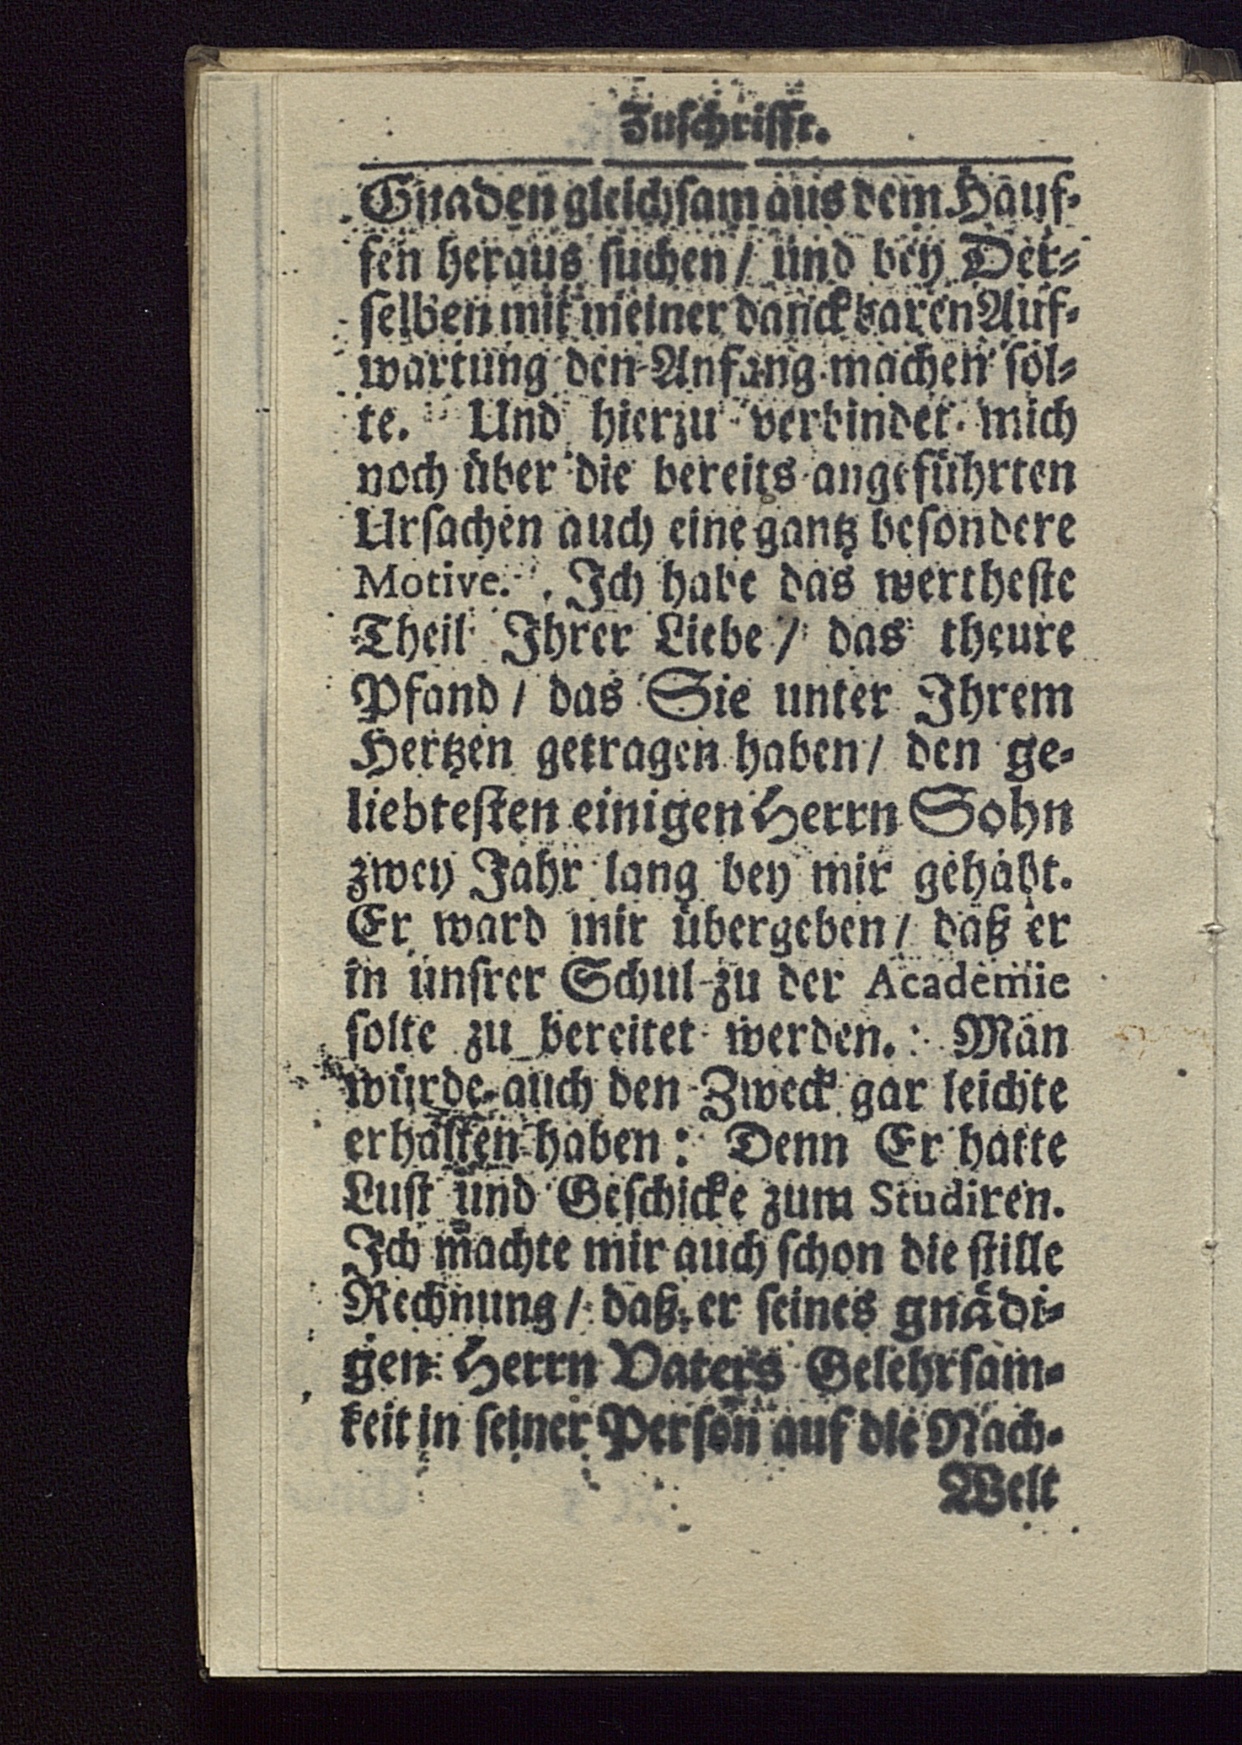 Zuschrifft.
Gnaden gleichsam aus dem Hauf-
fen heraus suchen / und bey Der-
selben mit meiner danckbaren Auf-
wartung den Anfang machen sol-
te. Und hierzu verbindet mich
noch über die bereits angeführten
Ursachen auch eine gantz besondere
Motive. Ich habe das wertheste
Theil Ihrer Liebe / das theure
Pfand / das Sie unter Ihrem
Hertzen getragen haben / den ge-
liebtesten einigen Herrn Sohn
zwey Jahr lang bey mir gehabt.
Er ward mir übergeben / daß er
in unsrer Schul zu der Academie
solte zu bereitet werden. Man
würde auch den Zweck gar leichte
erhalten haben: Denn Er hatte
Lust und Geschicke zum Studiren.
Ich machte mir auch schon die stille
Rechnung / daß er seines gnädi-
gen Herrn Vaters Gelehrsam-
keit in seiner Person auf die Nach-
Welt